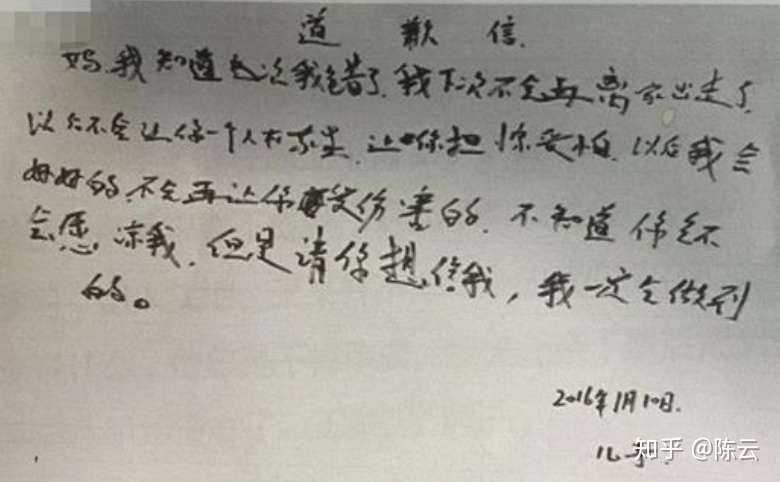 道歉信.
妈,我知道这次我错了.我下次不会再离家出走了.
以后不会让你一个人在家里.让你担惊受怕.以后我会
好好的.不会再让你受伤害的.不知道你会不
会愿凉我.但是请你想信我,我一定会做到
的。
2016年1月10日.
儿子.
知乎 @陈云